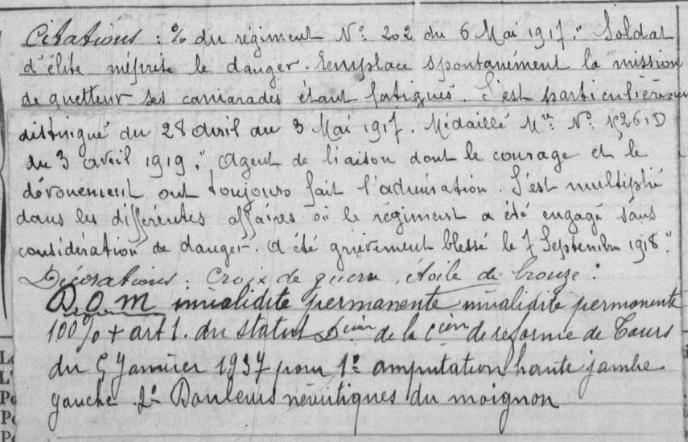 Citations : % du régiment No 202 du 6 Mai 1917 " Soldat
d'élite méprise le danger. Remplace spontanément la mission
de guetteur ses camarades étant fatigués. S'est particulièrem
distingué du 28 Avril au 3 Mai 1917. Médaillé Mre No
du 3 avril 1919 " Agent de liaison dont le courage et le
dévouement ont toujours fait l'admiration. S'est multiplié
dans les différentes affaires où le régiment a été engagé sans
considération de danger. A été grièvement blessé le 7 Septembre 1918 "
Décorations : Croix de guerre, étoile de bronze.
D.O.M invalidité permanente invalidité permanente
100% + art 1. du statut Dcion de la Cion de réforme de Tours
du 5 Janvier 1937 pour 1o amputation haute jambe
gauche 2o Douleurs névritiques du moignon